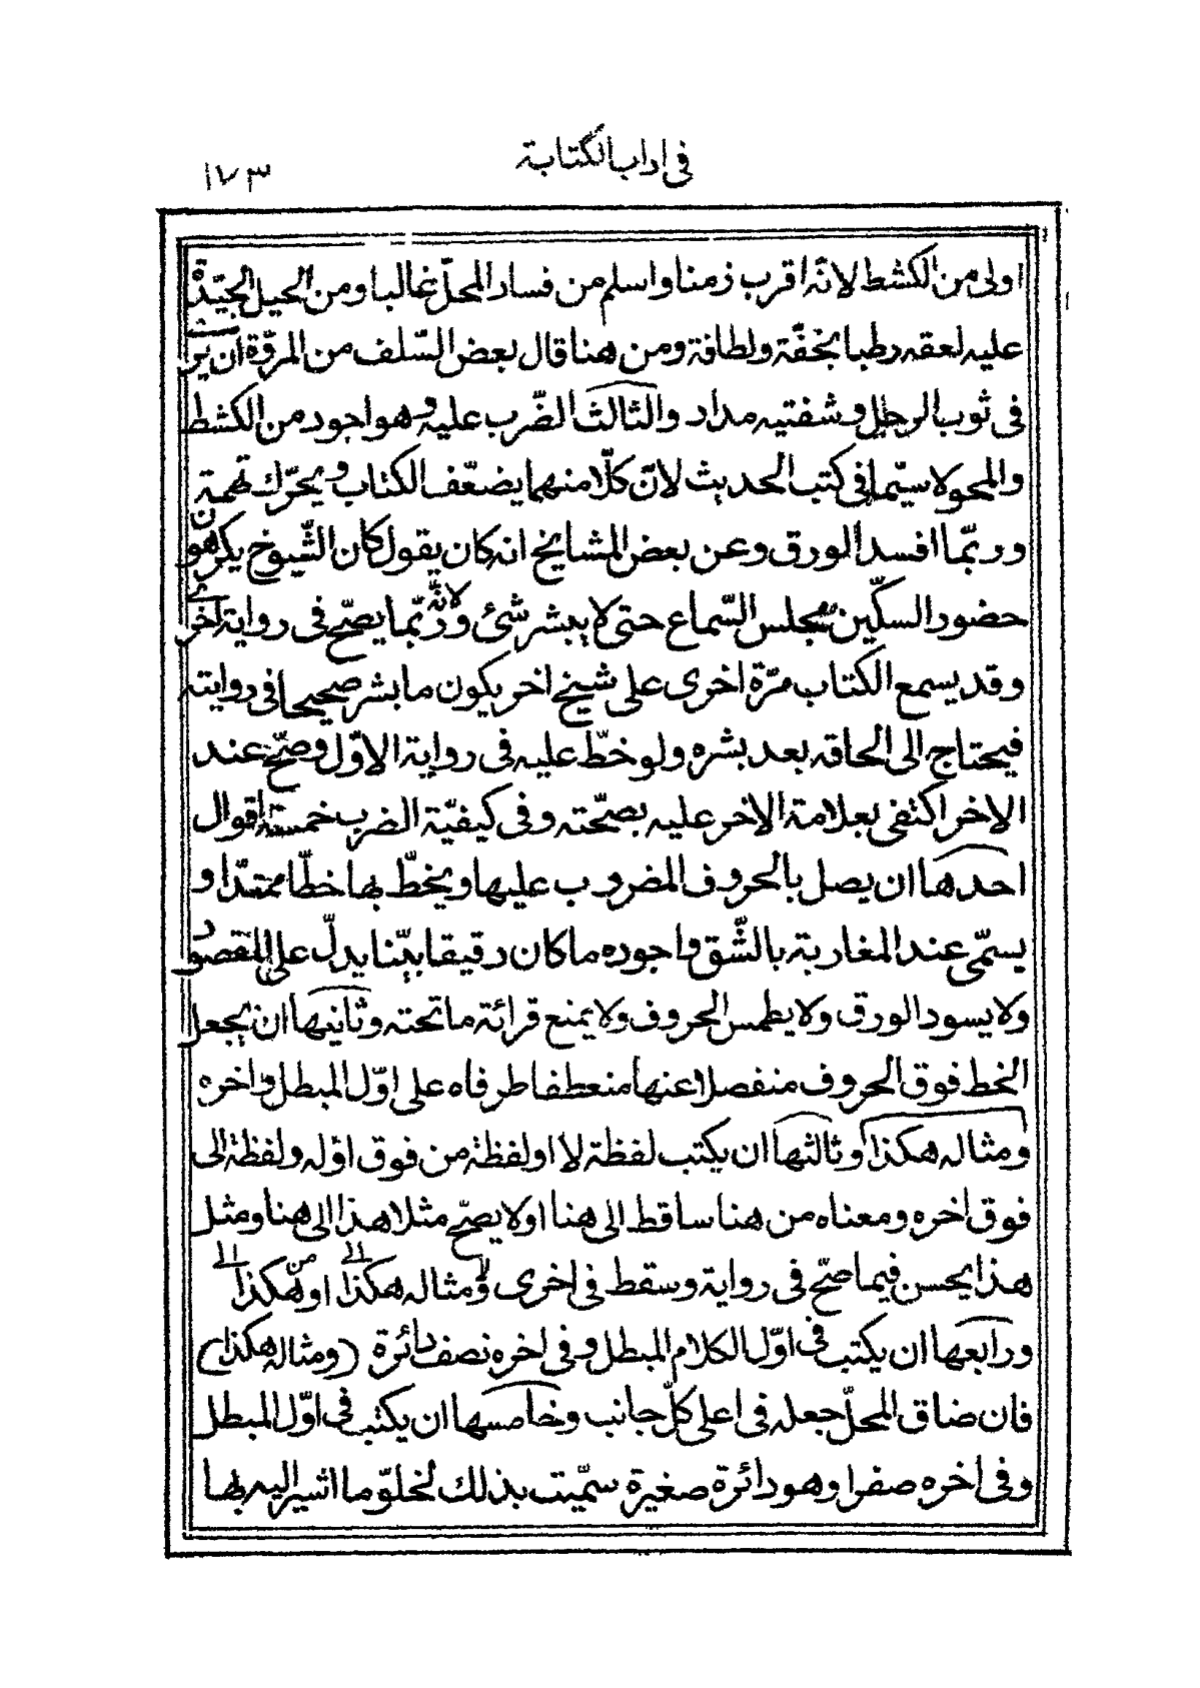 فى اداب الكتابة
١٧٣
اولى من الكشط لانّه اقرب زمنا واسلم من فساد المحلّ غالبا ومن الحيل الجيّدة
عليه لعقه رطبا بخفّة ولطافة ومن هنا قال بعض السّلف من المروّة ان يرى
فى ثوب الرجل وشفتيه مداد والثالث الضّرب عليه وهو اجود من الكشط
والمحو لا سيّما فى كتب الحديث لانّ كلّا منهما يضعّف الكتاب ويحرّك تهمة
وربّما افسد الورق وعن بعض المشايخ انه كان يقول كان الشّيوخ يكرهون
حضور السكّين مجلس السّماع حتى لا يبشر شئ ولانّه ربّما يصحّ فى رواية اخرى
وقد يسمع الكتاب مرّة اخرى على شيخ اخر يكون ما بشر صحيحا فى روايته
فيحتاج الى الحاقه بعد بشره ولو خطّ عليه فى رواية الاوّل وصحّ عند
الاخر اكتفى بعلامة الاخر عليه بصحّته وفى كيفيّة الضرب خمسة اقوال
احدها ان يصل بالحروف المضروب عليها ويخطّ بها خطّا ممتدّا و
يسمّى عند المغاربة بالشّق واجوده ما كان رقيقا بيّنا يدلّ على المقصود
ولا يسود الورق ولا يطمس الحروف ولا يمنع قرائة ما تحته وثانيها ان يجعل
الخط فوق الحروف منفصلا عنها منعطفا طرفاه على اوّل المبطل واخره
ومثاله هكذا وثالثها ان يكتب لفظة لا او لفظة من فوق اوّله ولفظة الى
فوق اخره ومعناه من هنا ساقط الى هنا او لا يصحّ مثلا هذا الى هنا ومثل
هذا يحسن فيما صحّ فى رواية وسقط فى اخرى ومثاله لا هكذا الى او من هكذا الى
ورابعها ان يكتب فى اوّل الكلام المبطل وفى اخره نصف دائرة (ومثاله هكذا)
فان ضاق المحلّ جعله فى اعلى كلّ جانب وخامسها ان يكتب فى اوّل المبطل
وفى اخره صفرا وهو دائرة صغيرة سمّيت بذلك لخلوّ ما اشير اليه بها